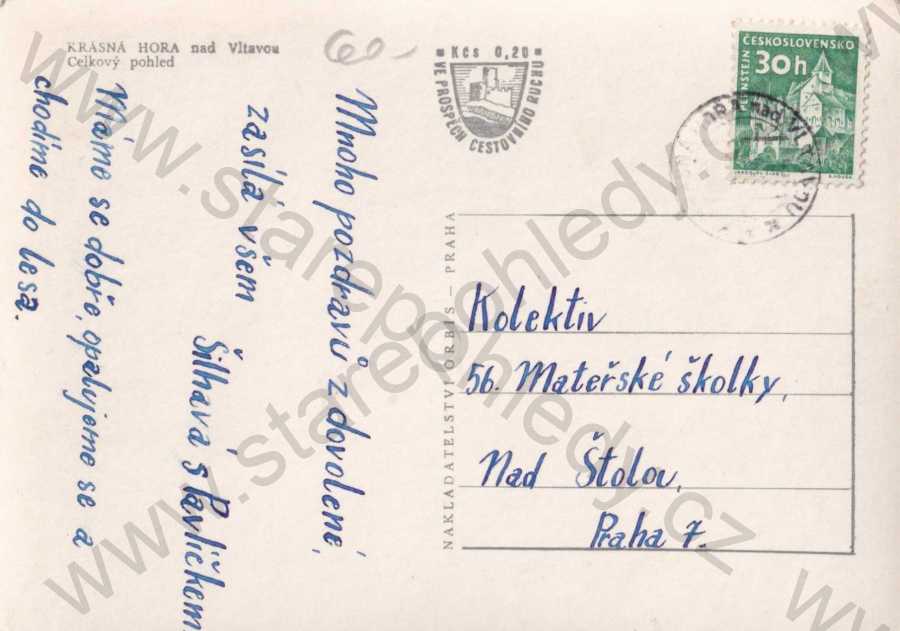 KRÁSNÁ HORA nad Vltavou
Celkový pohled
60-
Kčs 0,20
VE PROSPĚCH CESTOVNÍHO RUCHU
ČESKOSLOVENSKO
30h
PERNŠTEJN
nad VLTAVOU
NAKLADATELSTVÍ ORBIS — PRAHA
Mnoho pozdravů z dovolené,
zasílá všem
Šilhavá s Pavlíčkem.
Máme se dobře, opalujeme se a
chodíme do lesa.
Kolektiv
56. Mateřské školky,
Nad Štolou,
Praha 7.
www.starepohledy.cz
www.starepohledy.cz